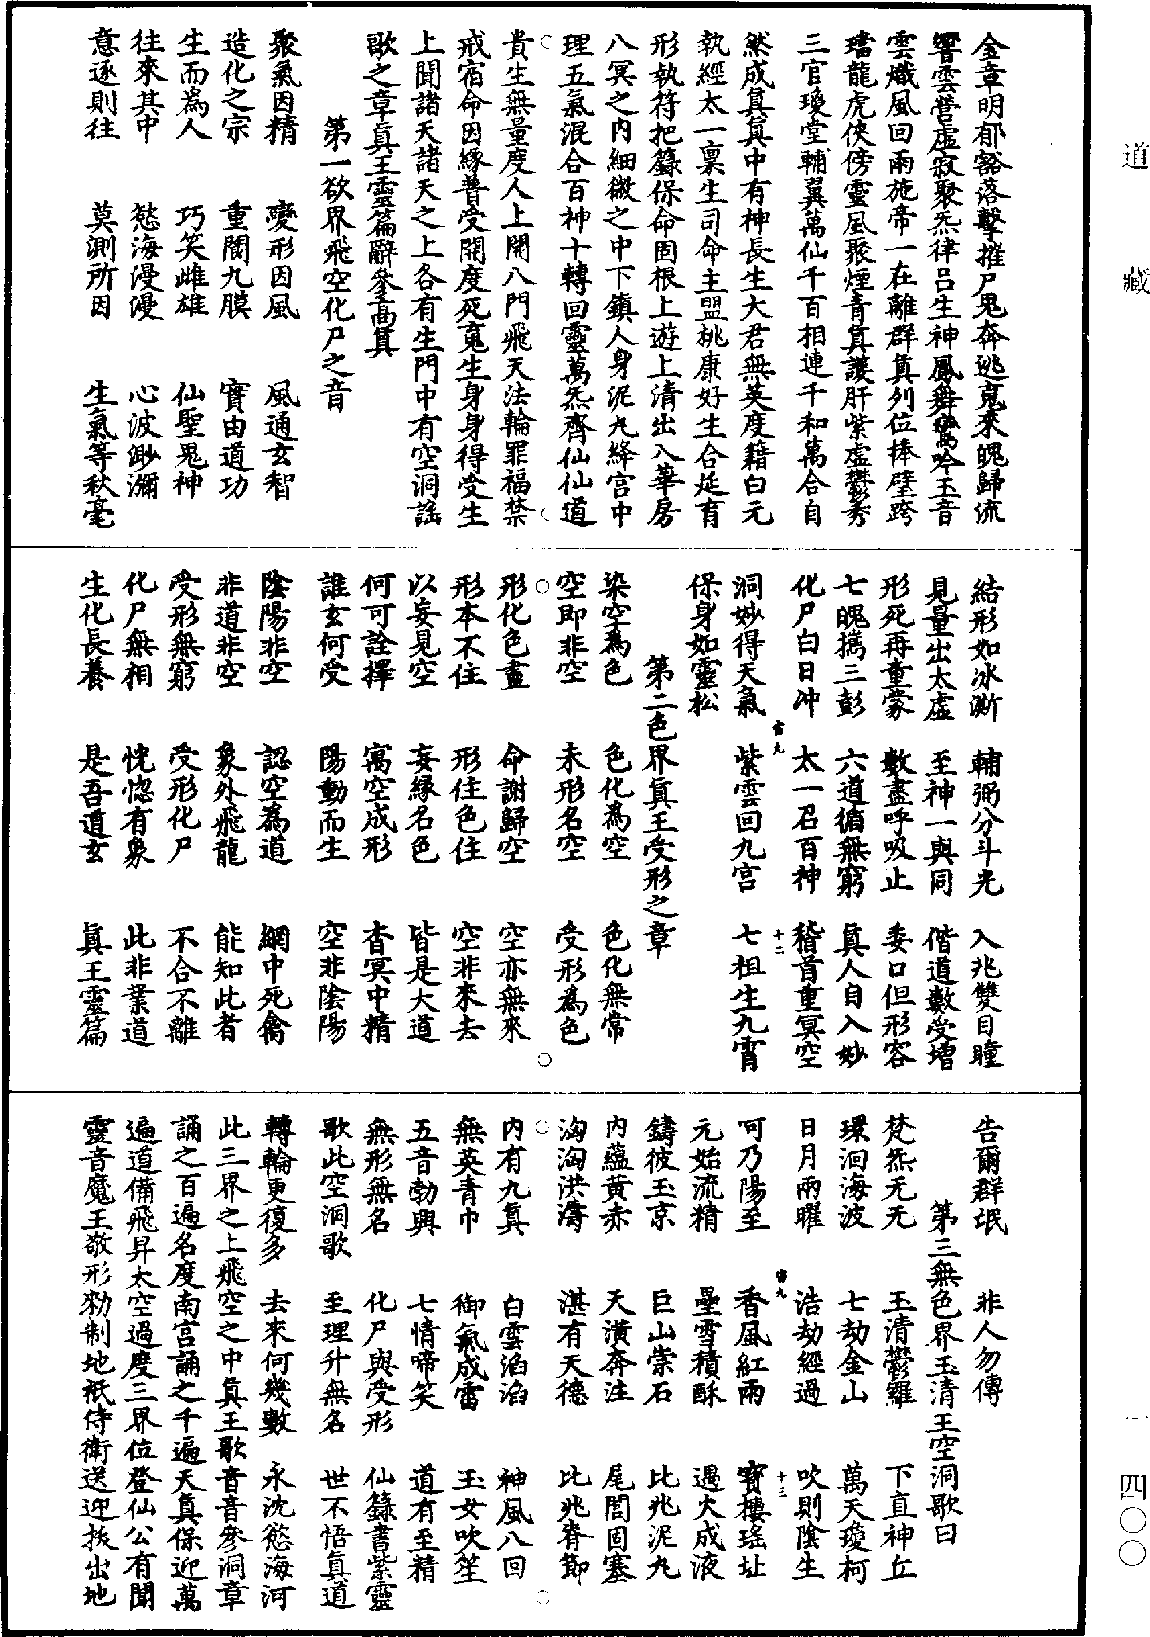 道藏
一 四〇〇
金章明郁豁落擊摧尸鬼奔逃䰟來魄歸流
響雲營虛寂聚炁律呂生神鳳舞鸞吟玉音
雲熾風回雨施帝一在離群真列位捧璧跨
璫龍虎俠傍靈風聚煙青真護肝紫虛鬱秀
三官瓊堂輔翼萬仙千百相連千和萬合自
然成真真中有神長生大君無英度籍白元
執經太一稟生司命主盟桃康好生合延有
形執符把籙保命固根上遊上清出入華房
八冥之內細微之中下鎮人身泥丸絳宮中
理五氣混合百神十轉回靈萬炁齊仙仙道
貴生無量度人上開八門飛天法輪罪福禁
戒宿命因緣普受開度死䰟生身身得受生
上聞諸天諸天之上各有生門中有空洞謠
歌之章真王靈篇辭參高真
第一欲界飛空化尸之音
聚氣因精 變形因風 風通玄智
造化之宗 重閫九膜 寶由道功
生而為人 巧笑雌雄 仙聖鬼神
往來其中 慾海漫漫 心波渺瀰
意逐則往 莫測所因 生氣等秋毫
結形如冰澌 輔弼分斗光 入兆雙目瞳
見量出太虛 至神一與同 偕道數受增
形死再重蒙 數盡呼吸止 委口但形容
七魄攜三彭 六道循無窮 真人自入妙
化尸白日沖 太一召百神 稽首重冥空
雷九 十二
洞妙得天氣 紫雲回九宮 七祖生九霄
保身如靈松
第二色界真王受形之章
染空為色 色化為空 色化無常
空即非空 未形名空 受形為色
形化色盡 命謝歸空 空亦無來
形本不住 形住色住 空非來去
以妄見空 妄緣名色 皆是大道
何可詮擇 寓空成形 杳冥中精
誰玄何受 陽動而生 空非陰陽
陰陽非空 認空為道 網中死禽
非道非空 象外飛龍 能知此者
受形無窮 受形化尸 不合不離
化尸無相 恍惚有象 此非業道
生化長養 是吾道玄 真王靈篇
告爾群氓 非人勿傳
第三無色界玉清王空洞歌曰
梵炁无无 玉清鬱羅 下直神丘
環洄海波 七劫金山 萬天瓊柯
日月兩曜 浩劫經過 吹則陰生
呵乃陽至 香風紅雨 寶樓瑤址
雷九 十三
元始流精 壘雪積酥 遇大成液
鑄彼玉京 巨山崇石 比兆泥丸
內蘊黃赤 天潢奔注 尾閭固塞
淘淘洪濤 湛有天德 比兆脊節
內有九真 白雲滔滔 神風八回
無英青巾 御氣成雷 玉女吹笙
五音勃興 七情啼笑 道有至精
無形無名 化尸與受形 仙籙書紫靈
歌此空洞歌 至理升無名 世不悟真道
轉輪更復多 去來何幾數 永沈慾海河
此三界之上飛空之中真王歌音音參洞章
誦之百遍名度南宮誦之千遍天真保迎萬
遍道備飛昇太空過度三界位登仙公有聞
靈音魔王敬形勑制地祇侍衛送迎拔出地